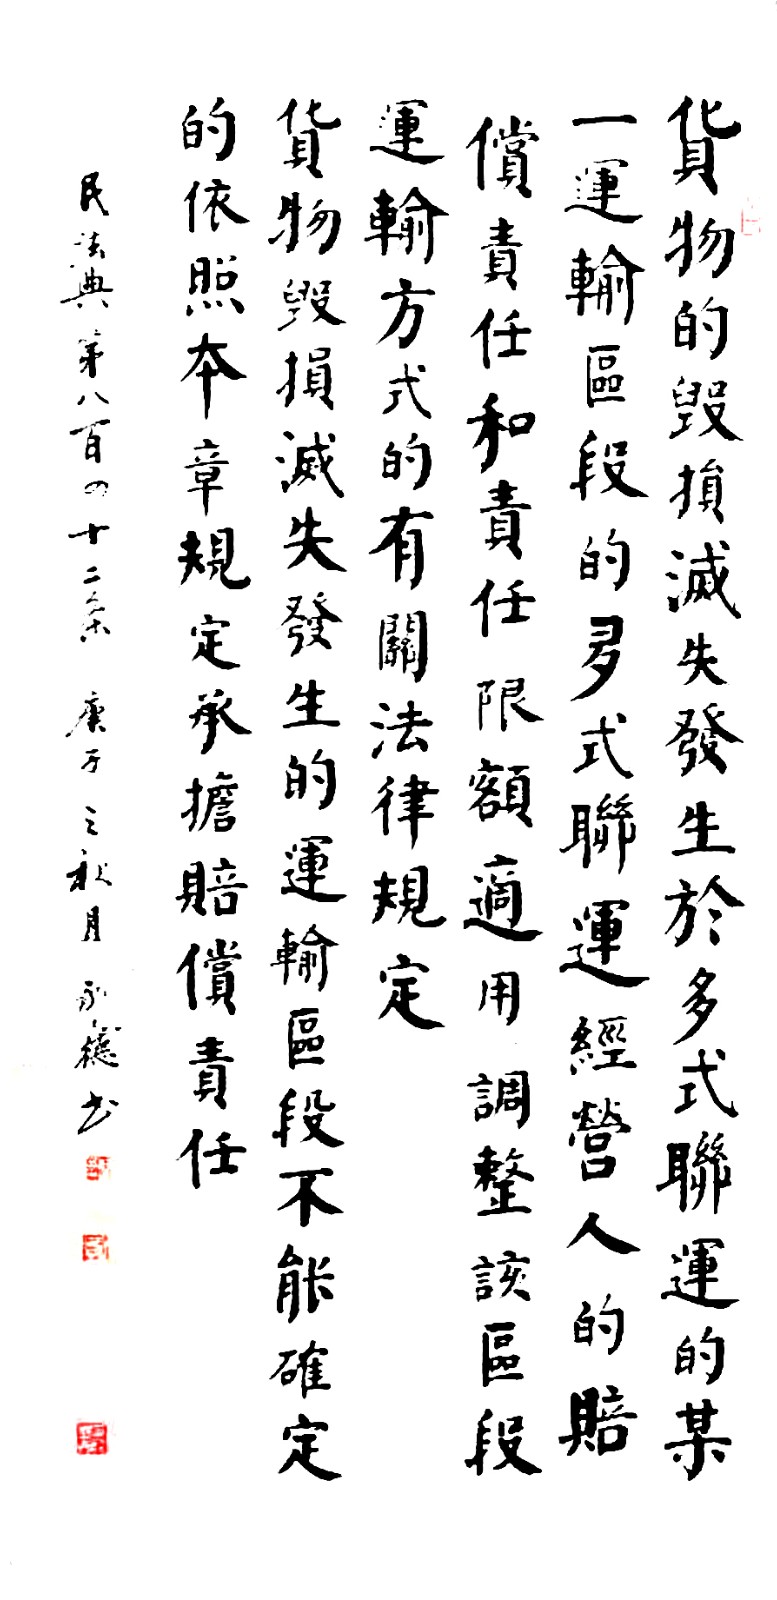 貨物的毀損滅失發生於多式聯運的某
一運輸區段的多式聯運經營人的賠
償責任和責任限額適用調整該區段
運輸方式的有關法律規定
貨物毀損滅失發生的運輸區段不能確定
的依照本章規定承擔賠償責任
民法典第八百四十二条 庚子之秋月 永德书